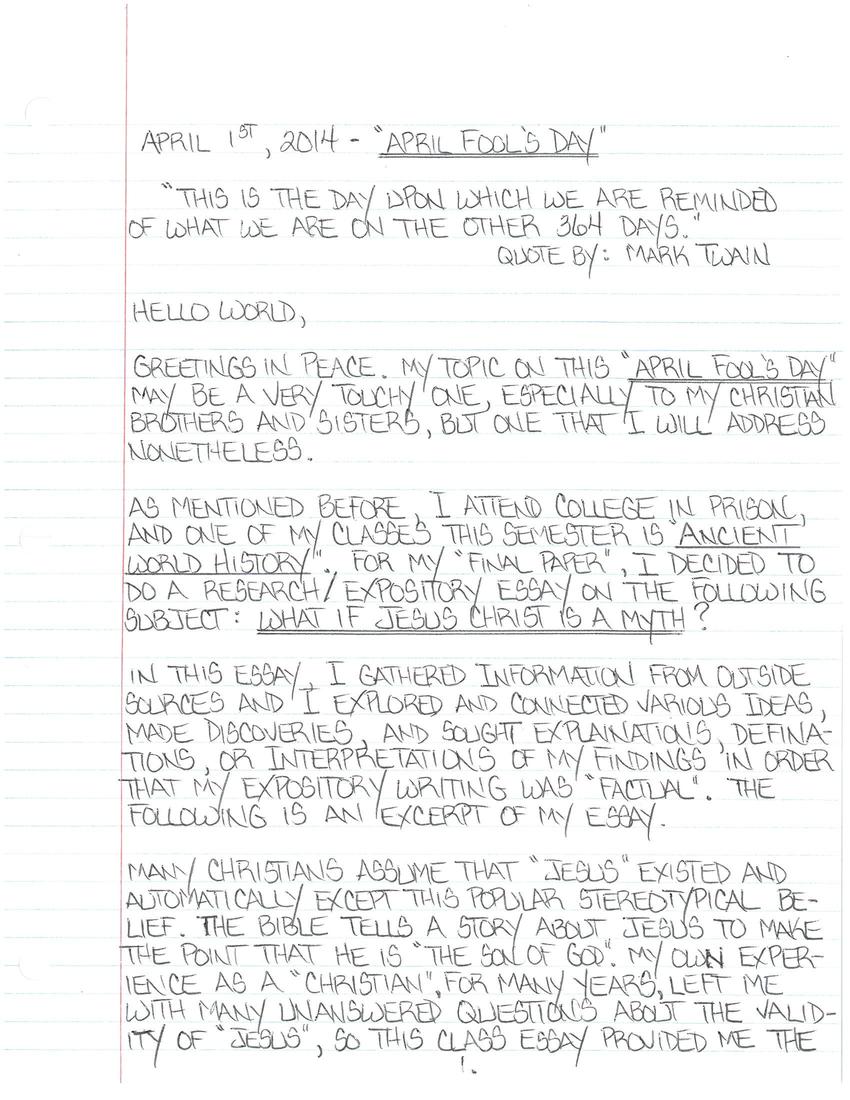 APRIL 1ST, 2014 - "APRIL FOOL'S DAY"
"THIS IS THE DAY UPON WHICH WE ARE REMINDED
OF WHAT WE ARE ON THE OTHER 364 DAYS."
QUOTE BY: MARK TWAIN
HELLO WORLD,
GREETINGS IN PEACE. MY TOPIC ON THIS "APRIL FOOL'S DAY"
MAY BE A VERY TOUCHY ONE, ESPECIALLY TO MY CHRISTIAN
BROTHERS AND SISTERS, BUT ONE THAT I WILL ADDRESS
NONETHELESS.
AS MENTIONED BEFORE, I ATTEND COLLEGE IN PRISON,
AND ONE OF MY CLASSES THIS SEMESTER IS "ANCIENT
WORLD HISTORY". FOR MY "FINAL PAPER", I DECIDED TO
DO A RESEARCH/EXPOSITORY ESSAY ON THE FOLLOWING
SUBJECT: WHAT IF JESUS CHRIST IS A MYTH?
IN THIS ESSAY, I GATHERED INFORMATION FROM OUTSIDE
SOURCES AND I EXPLORED AND CONNECTED VARIOUS IDEAS,
MADE DISCOVERIES, AND SOUGHT EXPLAINATIONS, DEFINA-
TIONS, OR INTERPRETATIONS OF MY FINDINGS IN ORDER
THAT MY EXPOSITORY WRITING WAS "FACTUAL". THE
FOLLOWING IS AN EXCERPT OF MY ESSAY.
MANY CHRISTIANS ASSUME THAT "JESUS" EXISTED AND
AUTOMATICALLY EXCEPT THIS POPULAR STEREOTYPICAL BE-
LIEF. THE BIBLE TELLS A STORY ABOUT JESUS TO MAKE
THE POINT THAT HE IS "THE SON OF GOD". MY OWN EXPER-
IENCE AS A "CHRISTIAN", FOR MANY YEARS, LEFT ME
WITH MANY UNANSWERED QUESTIONS ABOUT THE VALID-
ITY OF "JESUS", SO THIS CLASS ESSAY PROVIDED ME THE
1.